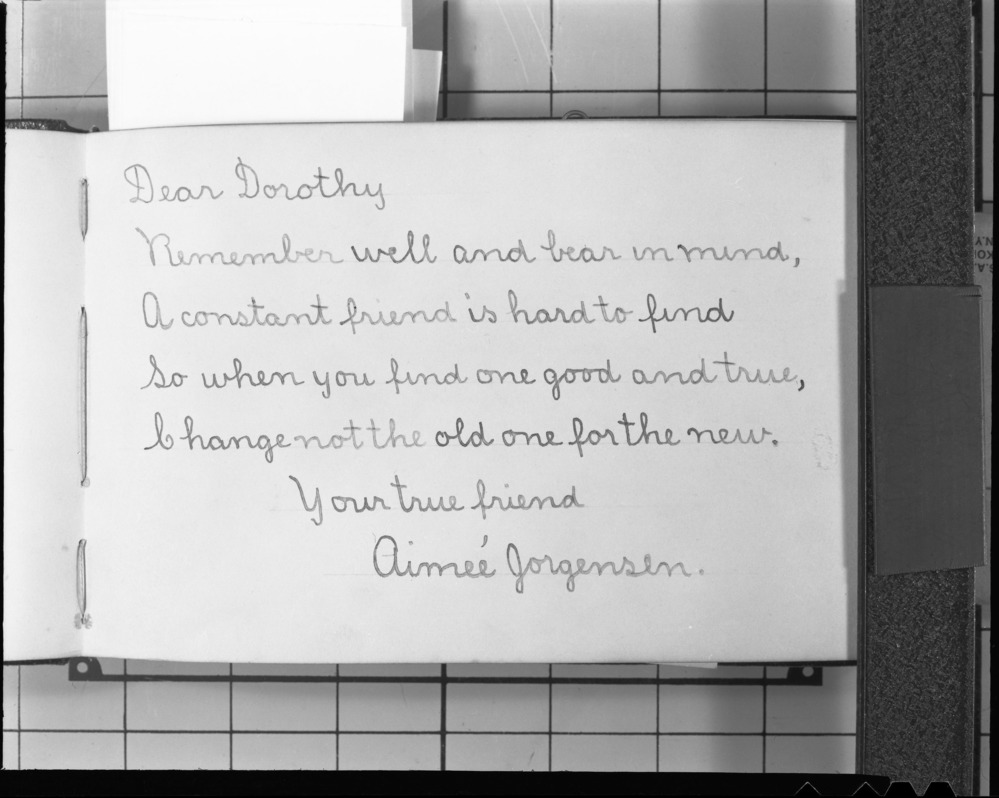 Dear Dorothy
Remember well and bear in mind,
A constant friend is hard to find
So when you find one good and true,
Change not the old one for the new.
Your true friend
Aimeé Jorgensen.